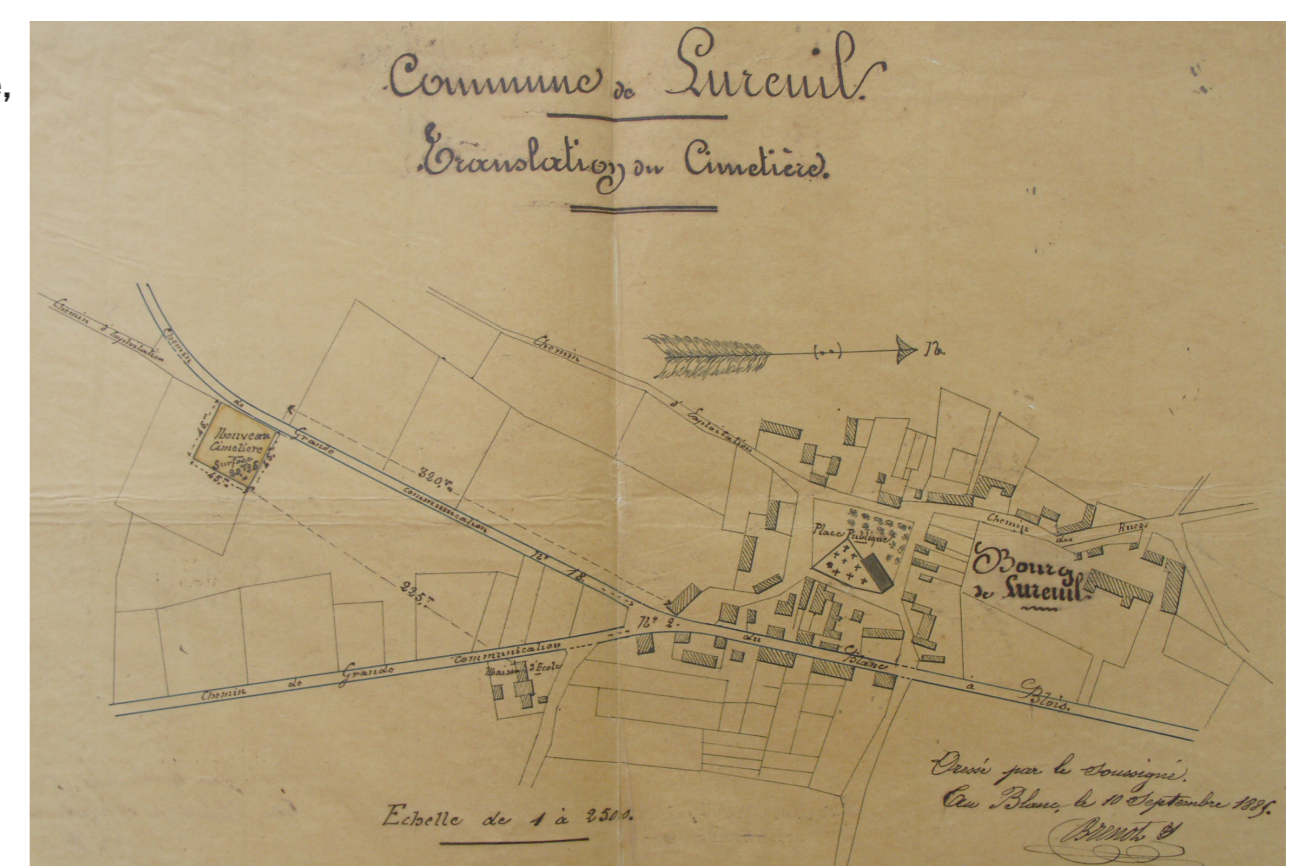 Commune de Lureuil.
Translation du Cimetière.
Chemin d'Exploitation
Chemin de Grande Communication N° 18
Chemin d'Exploitation
N.
45,m
Nouveau
Cimetière
Surface
45,m
45,m
320,m
225,m
Place Publique
Chemin des Rues
Bourg
de Lureuil.
Chemin de Grande Communication N° 2. du Blanc à Blois.
Maison d'Ecole
Echelle de 1 à 2500.
Dressé par le soussigné.
Au Blanc, le 10 Septembre 1885.